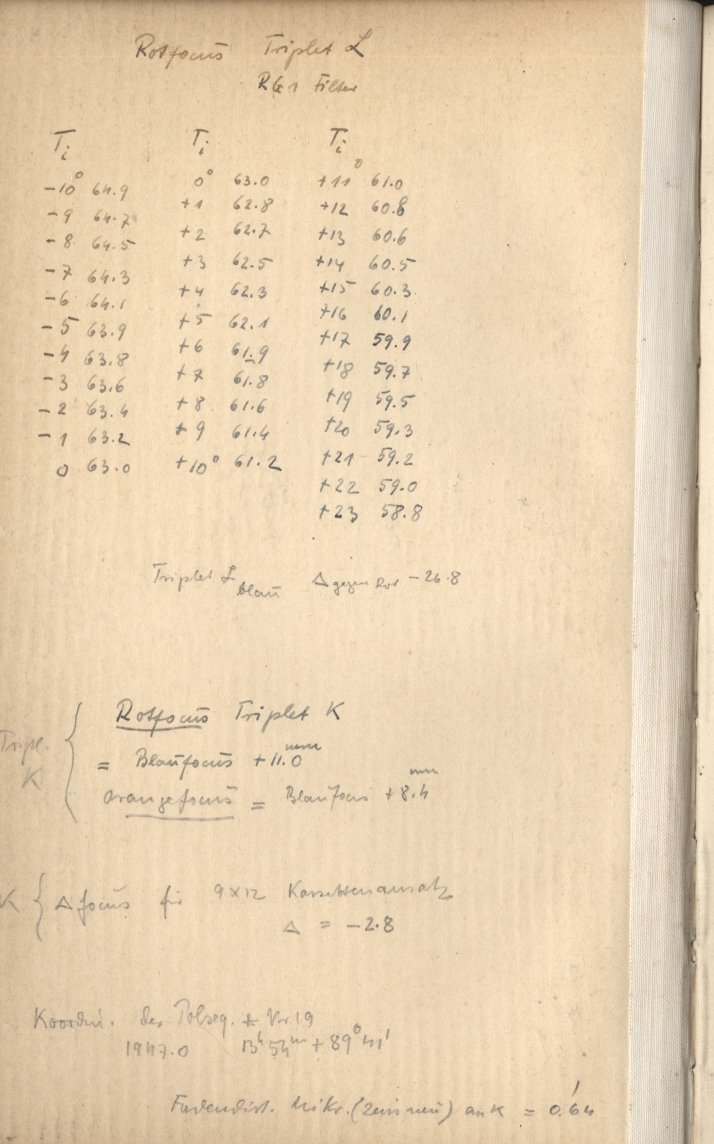 Rotfocus Triplet L
RG1 Filter
Ti Ti Ti
-10° 64.9 0° 63.0 +11° 61.0
-9 64.7 +1 62.8 +12 60.8
-8 64.5 +2 62.7 +13 60.6
-7 64.3 +3 62.5 +14 60.5
-6 64.1 +4 62.3 +15 60.3
-5 63.9 +5 62.1 +16 60.1
-4 63.8 +6 61.9 +17 59.9
-3 63.6 +7 61.8 +18 59.7
-2 63.4 +8 61.6 +19 59.5
-1 63.2 +9 61.4 +20 59.3
0 63.0 +10° 61.2 +21 59.2
+22 59.0
+23 58.8
Triplet L blau Δ gegen Rot -26.8
Rotfocus Triplet K
Tripl. K { = Blaufocus + 11.0 mm
Orangefocus = Blaufocus + 8.4 mm
K { Δ focus für 9x12 Kassettenansatz
Δ = -2.8
Koordin. der Polseq. * Nr 19
1947.0 13h 54m + 89° 41'
Fadendist. Mikr. (Zeiss neu) an K = 0.'64